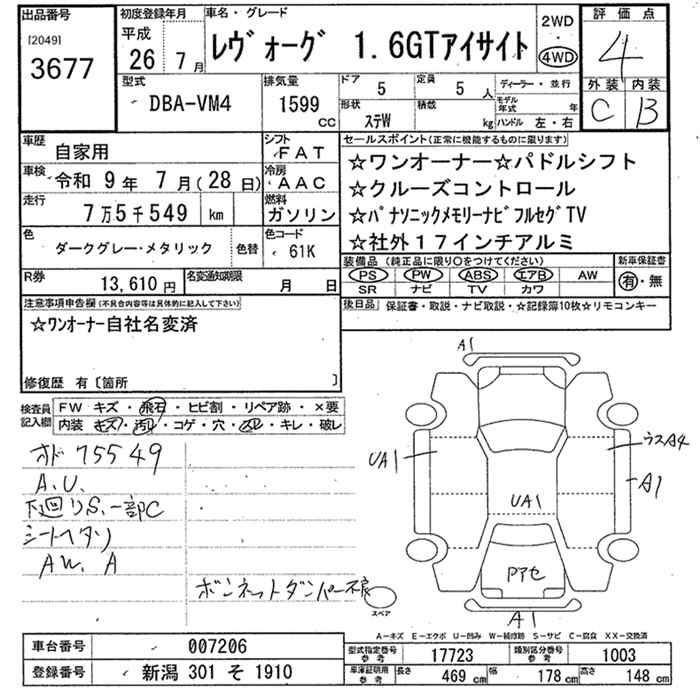 出品番号
[2049]
3677
初度登録年月
平成
26年 7月
車名・グレード
レヴォーグ 1.6GTアイサイト
2WD
・
4WD
評価点
4
外装 内装
C B
型式
DBA-VM4
排気量
1599 CC
ドア 5
定員 5人
形状 ステW
積載 kg
ディーラー・並行
モデル年式 年
ハンドル 左・右
車歴 自家用
シフト FAT
車検 令和 9年 7月(28日)
冷房 AAC
走行 7万5千549 km
燃料 ガソリン
色 ダークグレー・メタリック 色替
色コード 61K
R券 13,610円
名変通知期限 月 日
セールスポイント(正常に機能するものに限ります)
☆ワンオーナー☆パドルシフト
☆クルーズコントロール
☆パナソニックメモリーナビフルセグTV
☆社外17インチアルミ
装備品(純正品に限り○をつけてください)
PS PW ABS エアB AW
SR ナビ TV カワ
新車保証書
有・無
後日品 保証書・取説・ナビ取説・☆記録簿10枚☆リモコンキー
注意事項申告欄(不具合内容等は具体的に記入して下さい)
☆ワンオーナー自社名変済
修復歴 有〔箇所 〕
検査員記入欄
FW キズ・飛石・ヒビ割・リペア跡・×要
内装 キズ・汚れ・コゲ・穴・スレ・キレ・破レ
オド 75549
A.U.
下廻りS.一部C
シートヘタリ
AW.A
ボンネットダンパー不良
A1
UA1
ウスA4
A1
UA1
Pアセ
A1
スペア
A-キズ E-エクボ U-凹み W-補修跡 S-サビ C-腐食 XX-交換済
車台番号 007206
登録番号 新潟 301 そ 1910
型式指定番号 参考 17723
類別区分番号 参考 1003
車庫証明用 参考 長さ 469 cm 幅 178 cm 高さ 148 cm